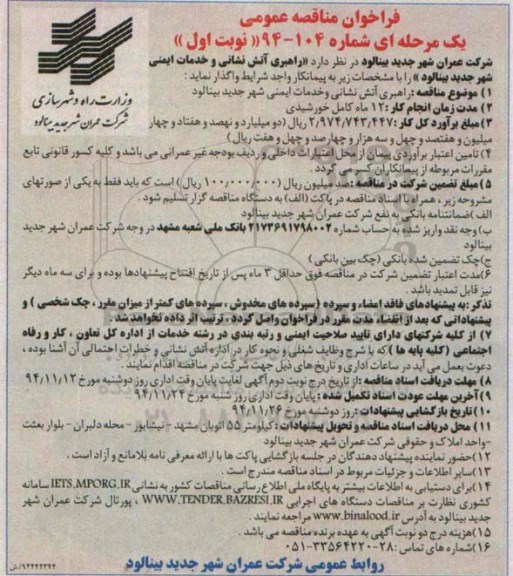 فراخوان مناقصه عمومی
یک مرحله ای شماره ۱۰۴-۹۴« نوبت اول »
وزارت راه و شهرسازی
شرکت عمران شهر جدید بینالود
شرکت عمران شهر جدید بینالود در نظر دارد «راهبری آتش نشانی و خدمات ایمنی
شهر جدید بینالود » را با مشخصات زیر به پیمانکار واجد شرایط واگذار نماید :
۱) موضوع مناقصه : راهبری آتش نشانی وخدمات ایمنی شهر جدید بینالود
۲) مدت زمان انجام کار : ۱۲ ماه کامل خورشیدی
۳) مبلغ برآورد کل کار : ۲/۹۷۴/۷۴۳/۴۴۷ ریال (دو میلیارد و نهصد و هفتاد و چهار
میلیون و هفتصد و چهل و سه هزار و چهارصد و چهل و هفت ریال)
۴) تامین اعتبار برآوردی پیمان از محل اعتبارات داخلی و ردیف بودجه غیر عمرانی می باشد و کلیه کسور قانونی تابع
مقررات مربوطه از پیمانکاران کسر می گردد .
۵) مبلغ تضمین شرکت در مناقصه : صد میلیون ریال (۱۰۰/۰۰۰/۰۰۰ ریال) است که باید فقط به یکی از صورتهای
مشروحه زیر ، همراه با اسناد مناقصه در پاکت (الف) به دستگاه مناقصه گزار تسلیم شود .
الف) ضمانتنامه بانکی به نفع شرکت عمران شهر جدید بینالود
ب) وجه نقد واریز شده به حساب شماره ۲۱۷۳۶۹۱۷۹۸۰۰۲ بانک ملی شعبه مشهد در وجه شرکت عمران شهر جدید
بینالود
ج) چک تضمین شده بانکی (چک بین بانکی)
۶) مدت اعتبار تضمین شرکت در مناقصه فوق حداقل ۳ ماه پس از تاریخ افتتاح پیشنهادها بوده و برای سه ماه دیگر
نیز قابل تمدید باشد .
تذکر : به پیشنهادهای فاقد امضاء و سپرده (سپرده های مخدوش ، سپرده های کمتر از میزان مقرر ، چک شخصی ) و
پیشنهاداتی که بعد از انقضاء مدت مقرر در فراخوان واصل گردد ، ترتیب اثر داده نخواهد شد .
۷) از کلیه شرکتهای دارای تایید صلاحیت ایمنی و رتبه بندی در رشته خدمات از اداره کل تعاون ، کار و رفاه
اجتماعی (کلیه پایه ها ) که با شرح وظایف شغلی و نحوه کار در اداره آتش نشانی و خطرات احتمالی آن آشنا بوده ،
دعوت بعمل می آید در ساعات اداری و تاریخ های ذیل جهت شرکت در مناقصه اقدام نمایند .
۸) مهلت دریافت اسناد مناقصه : از تاریخ درج نوبت دوم آگهی لغایت پایان وقت اداری روز دوشنبه مورخ ۹۴/۱۱/۱۲
۹) آخرین مهلت عودت اسناد تکمیل شده : پایان وقت اداری روز شنبه مورخ ۹۴/۱۱/۲۴
۱۰) تاریخ بازگشایی پیشنهادات : روز دوشنبه مورخ ۹۴/۱۱/۲۶
۱۱) محل دریافت اسناد مناقصه و تحویل پیشنهادات : کیلومتر ۵۵ اتوبان مشهد - نیشابور - محله دلبران - بلوار بعثت
-واحد املاک و حقوقی شرکت عمران شهر جدید بینالود
۱۲) حضور نماینده پیشنهاد دهندگان در جلسه بازگشایی پاکت ها با ارائه معرفی نامه بلامانع و آزاد است .
۱۳) سایر اطلاعات و جزئیات مربوط در اسناد مناقصه مندرج است .
۱۴) برای دستیابی به اطلاعات بیشتر به پایگاه ملی اطلاع رسانی مناقصات کشور به نشانی IETS.MPORG.IR سامانه
کشوری نظارت بر مناقصات دستگاه های اجرایی WWW.TENDER.BAZRESI.IR ، پورتال شرکت عمران شهر
جدید بینالود به آدرس www.binalood.ir مراجعه نمایند .
۱۵) هزینه درج دو نوبت آگهی به عهده برنده مناقصه می باشد .
۱۶) شماره های تماس : ۲۸-۳۳۵۶۴۲۲۰-۰۵۱
روابط عمومی شرکت عمران شهر جدید بینالود